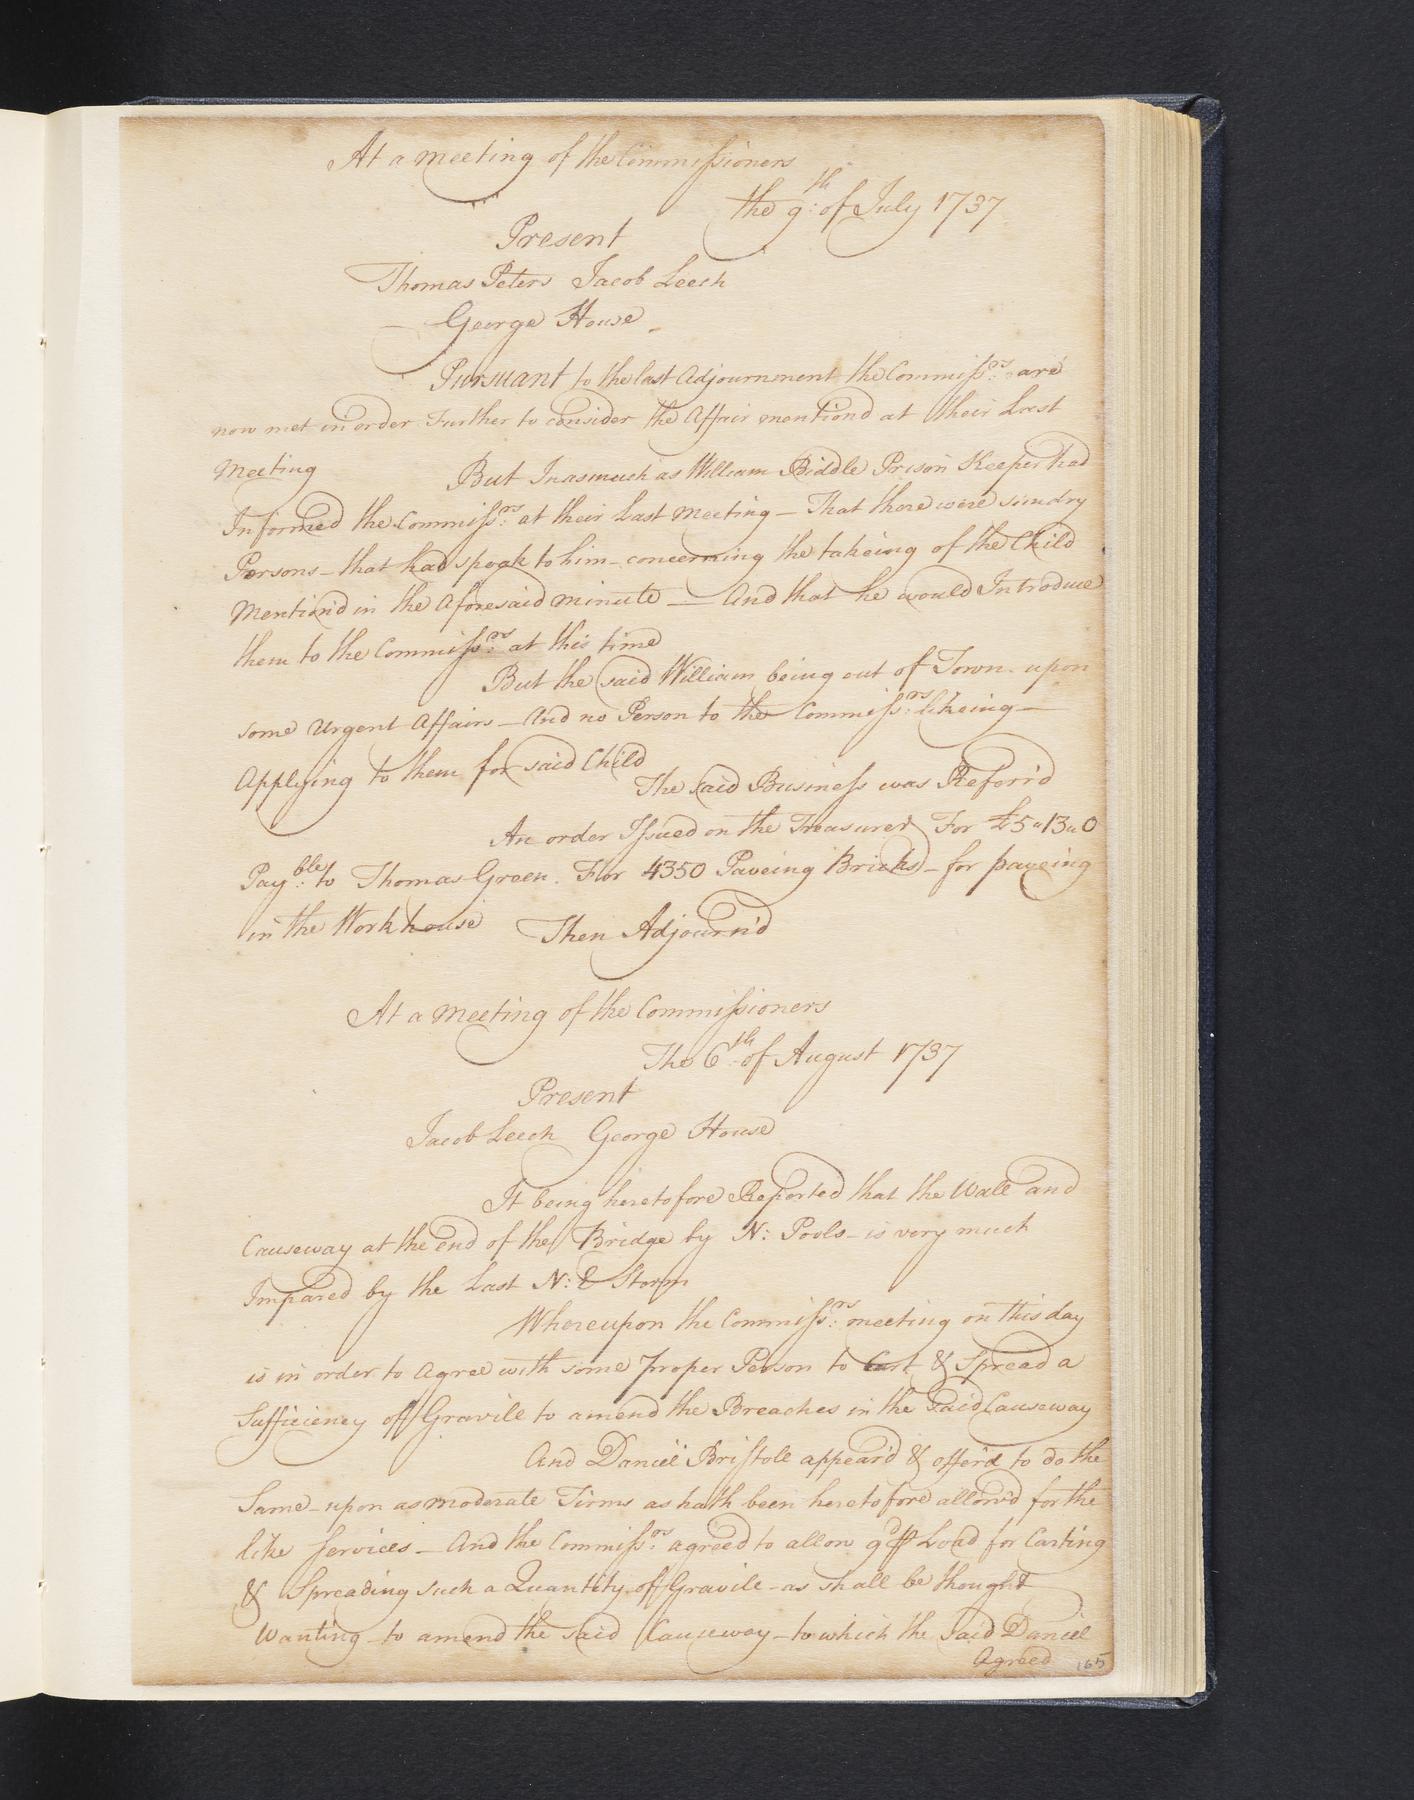 At a meeting of the Commissioners
the 9th: of July 1737
Present
Thomas Peters Jacob Leech
George House
Pursuant to the last Adjournment the Commissrs: are
now met in order Further to consider the Affair mentiond at their Last
Meeting But Inasmuch as William Biddle Prison Keeper had
Informed the Commissrs: at their Last Meeting – That there were sundry
Persons – that had speak to him – concerning the takeing of the Child
Mention'd in the Aforesaid minute — And that he would Introduce
them to the Commissrs: at this time
But the said William being out of Town upon
some Urgent Affairs – And no Person to the Commissrs: likeing –
Applying to them for said Child
The said Business was Referr'd
An order Issued on the Treasurer For £5"13"0
Payble: to Thomas Green. For 4350 Paveing Bricks – for paveing
in the Workhouse Then Adjourn'd
At a Meeting of the Commissioners
The 6th: of August 1737
Present
Jacob Leech George House
It being heretofore Reported that the Wall and
Causeway at the end of the Bridge by N: Pools – is very much
Impared by the Last N: E Storm
Whereupon the Commissrs: meeting on this day
is in order to Agree with some proper Person to Cart & Spread a
Sufficiency off Gravile to amend the Breaches in the Said Causeway
And Daniel Bristoll appear'd & offer'd to do the
Same – upon as moderate Tirms as hath been heretofore allow'd for the
like Services – And the Commissrs: agreed to allow 9d ⅌ Load for Carting
& Spreading such a Quantity off Gravile – as shall be thought
Wanting – to amend the said Causeway – to which the Said Daniel
Agreed 165